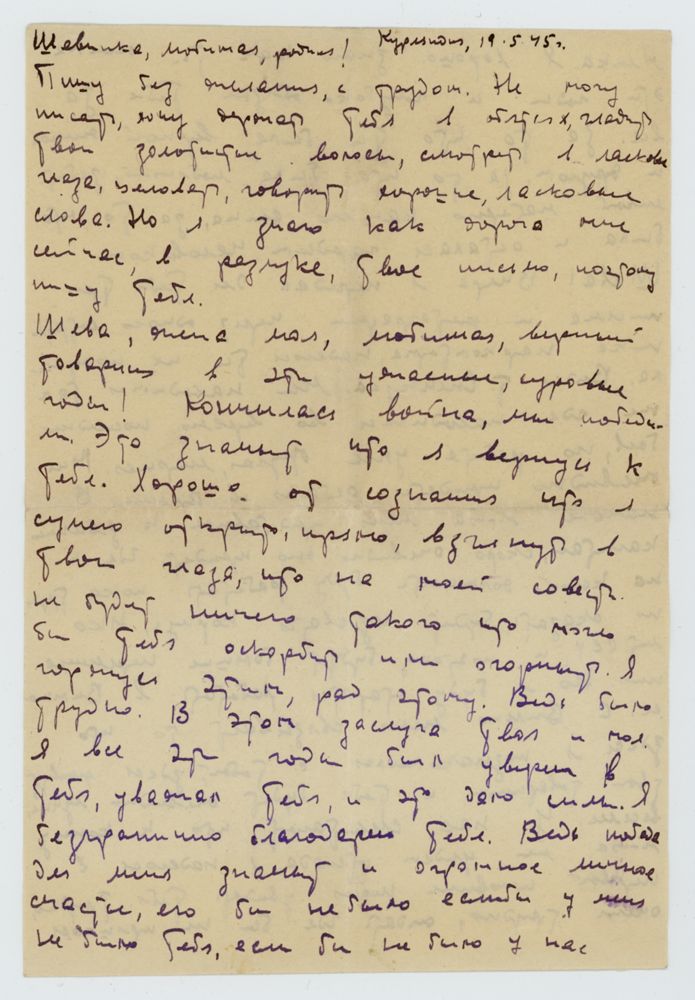 Шевинка, любимая, родная! Курляндия, 19.5.45г.
Пишу без желания, с трудом. Не могу
писать, хочу держать тебя в объятьях, гладить
твои золотистые волосы, смотреть в ласковые
глаза, целовать, говорить хорошие, ласковые
слова. Но я знаю как дорого мне
сейчас, в разлуке, твое письмо, поэтому
пишу тебе.
Шева, жена моя, любимая, верный
товарищ в эти ужасные, суровые
годы! Кончилась война, мы победи-
ли. Это значит что я вернусь к
тебе. Хорошо от сознания что я
сумею открыто, прямо, взглянуть в
твои глаза, что на моей совести
не будет ничего такого что могло
бы тебя оскорбить или огорчить. Я
горжусь этим, рад этому. Ведь было
трудно. В этом заслуга твоя и моя.
Я все эти годы был уверен в
тебя, уважал тебя, и это дало силы. Я
безгранично благодарен тебе. Ведь победа
для меня значит и огромное личное
счастье, его бы не было еслибы у меня
не было тебя, если бы не было у нас